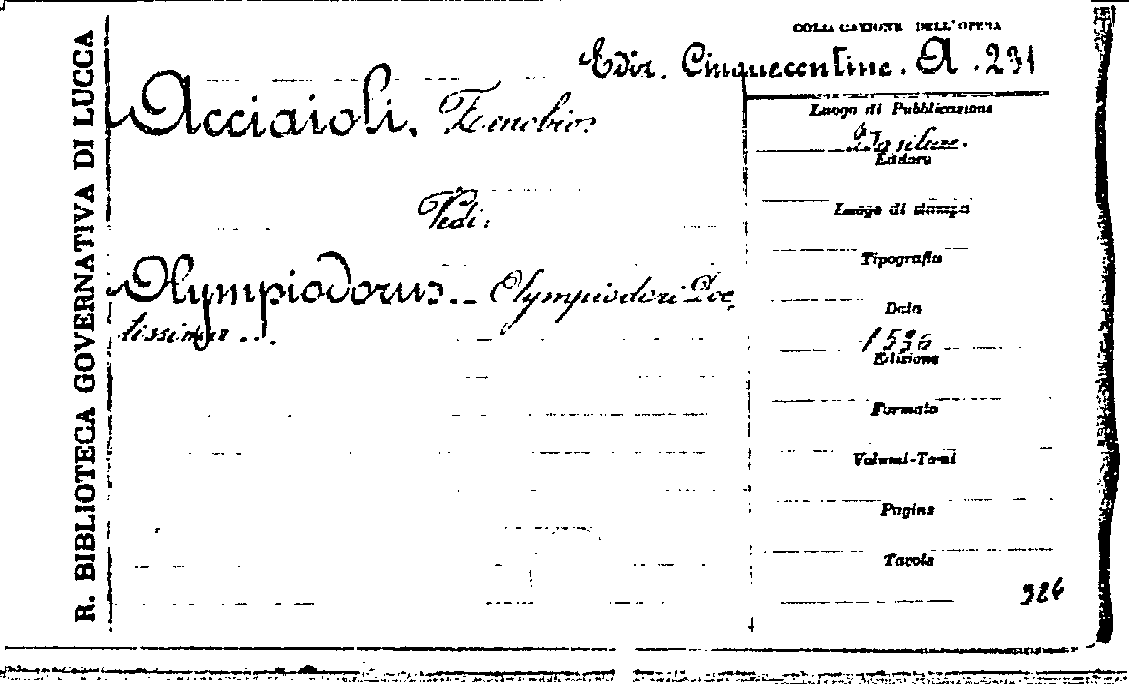 R. BIBLIOTECA GOVERNATIVA DI LUCCA
COLLOCAZIONE DELL'OPERA
Ediz. Cinquecentine. A. 231
Acciaioli. Zenobio
Vedi:
Olympiodorus. - Olympiodori Doc
tissimus ...
Luogo di Pubblicazione
Basileae.
Editore
Luogo di stampa
Tipografia
Data
1536
Edizione
Formato
Volumi-Tomi
Pagine
Tavole
326